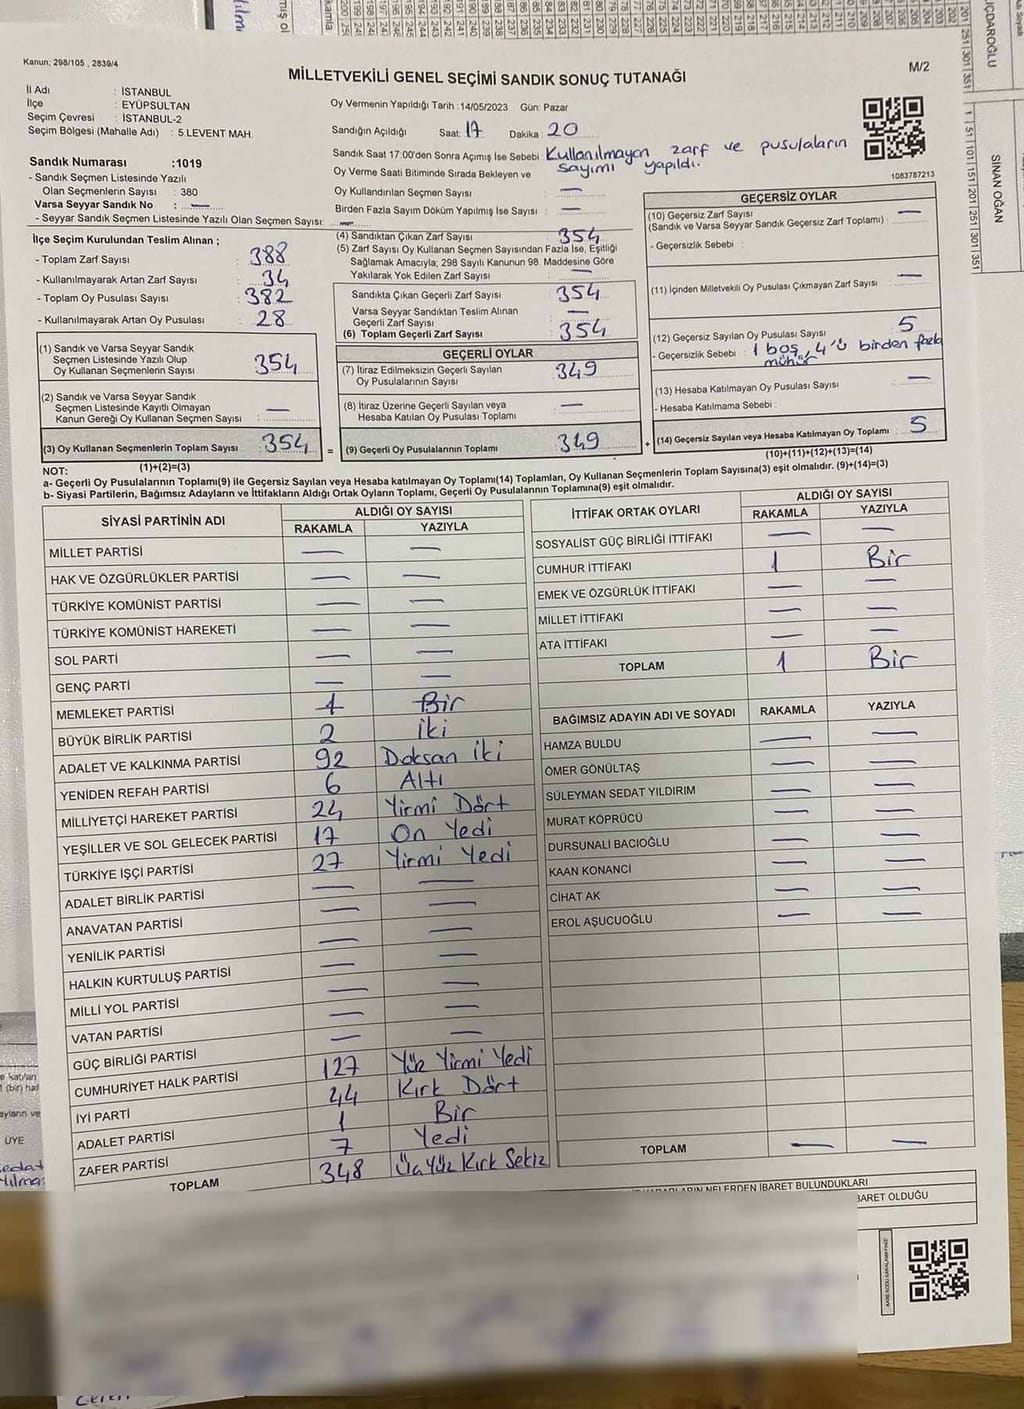 Kanun; 298/105 , 2839/4
MİLLETVEKİLİ GENEL SEÇİMİ SANDIK SONUÇ TUTANAĞI
M/2
İl Adı : İSTANBUL
İlçe : EYÜPSULTAN
Seçim Çevresi : İSTANBUL-2
Seçim Bölgesi (Mahalle Adı) : 5.LEVENT MAH.
Sandık Numarası :1019
- Sandık Seçmen Listesinde Yazılı
Olan Seçmenlerin Sayısı : 380
Varsa Seyyar Sandık No : —
- Seyyar Sandık Seçmen Listesinde Yazılı Olan Seçmen Sayısı: —
Oy Vermenin Yapıldığı Tarih :14/05/2023 Gün: Pazar
Sandığın Açıldığı Saat: 17 Dakika : 20
Sandık Saat 17:00'den Sonra Açımış İse Sebebi : Kullanılmayan zarf ve pusulaların
sayımı yapıldı.
Oy Verme Saati Bitiminde Sırada Bekleyen ve
Oy Kullandırılan Seçmen Sayısı —
Birden Fazla Sayım Döküm Yapılmış İse Sayısı : —
1083787213
İlçe Seçim Kurulundan Teslim Alınan ;
- Toplam Zarf Sayısı : 388
- Kullanılmayarak Artan Zarf Sayısı : 34
- Toplam Oy Pusulası Sayısı : 382
- Kullanılmayarak Artan Oy Pusulası : 28
(1) Sandık ve Varsa Seyyar Sandık
Seçmen Listesinde Yazılı Olup
Oy Kullanan Seçmenlerin Sayısı : 354
(2) Sandık ve Varsa Seyyar Sandık
Seçmen Listesinde Kayıtlı Olmayan
Kanun Gereği Oy Kullanan Seçmen Sayısı : —
(3) Oy Kullanan Seçmenlerin Toplam Sayısı : 354
(1)+(2)=(3)
(4) Sandıktan Çıkan Zarf Sayısı 354
(5) Zarf Sayısı Oy Kullanan Seçmen Sayısından Fazla İse, Eşitliği
Sağlamak Amacıyla; 298 Sayılı Kanunun 98. Maddesine Göre
Yakılarak Yok Edilen Zarf Sayısı : —
Sandıkta Çıkan Geçerli Zarf Sayısı : 354
Varsa Seyyar Sandıktan Teslim Alınan
Geçerli Zarf Sayısı : —
(6) Toplam Geçerli Zarf Sayısı : 354
GEÇERLİ OYLAR
(7) İtiraz Edilmeksizin Geçerli Sayılan
Oy Pusulalarının Sayısı : 349
(8) İtiraz Üzerine Geçerli Sayılan veya
Hesaba Katılan Oy Pusulası Toplamı : —
= (9) Geçerli Oy Pusulalarının Toplamı : 349
GEÇERSİZ OYLAR
(10) Geçersiz Zarf Sayısı
(Sandık ve Varsa Seyyar Sandık Geçersiz Zarf Toplamı) : —
- Geçersizlik Sebebi :
(11) İçinden Milletvekili Oy Pusulası Çıkmayan Zarf Sayısı : —
(12) Geçersiz Sayılan Oy Pusulası Sayısı : 5
- Geçersizlik Sebebi : 1 boş, 4'ü birden fazla
mühür
(13) Hesaba Katılmayan Oy Pusulası Sayısı : —
- Hesaba Katılmama Sebebi :
+ (14) Geçersiz Sayılan veya Hesaba Katılmayan Oy Toplamı : 5
(10)+(11)+(12)+(13)=(14)
NOT:
a- Geçerli Oy Pusulalarının Toplamı(9) ile Geçersiz Sayılan veya Hesaba katılmayan Oy Toplamı(14) Toplamları, Oy Kullanan Seçmenlerin Toplam Sayısına(3) eşit olmalıdır. (9)+(14)=(3)
b- Siyasi Partilerin, Bağımsız Adayların ve İttifakların Aldığı Ortak Oyların Toplamı, Geçerli Oy Pusulalarının Toplamına(9) eşit olmalıdır.
SİYASİ PARTİNİN ADI ALDIĞI OY SAYISI
RAKAMLA YAZIYLA
MİLLET PARTİSİ — —
HAK VE ÖZGÜRLÜKLER PARTİSİ — —
TÜRKİYE KOMÜNİST PARTİSİ — —
TÜRKİYE KOMÜNİST HAREKETİ — —
SOL PARTİ — —
GENÇ PARTİ — —
MEMLEKET PARTİSİ 1 Bir
BÜYÜK BİRLİK PARTİSİ 2 İki
ADALET VE KALKINMA PARTİSİ 92 Doksan İki
YENİDEN REFAH PARTİSİ 6 Altı
MİLLİYETÇİ HAREKET PARTİSİ 24 Yirmi Dört
YEŞİLLER VE SOL GELECEK PARTİSİ 17 On Yedi
TÜRKİYE İŞÇİ PARTİSİ 27 Yirmi Yedi
ADALET BİRLİK PARTİSİ — —
ANAVATAN PARTİSİ — —
YENİLİK PARTİSİ — —
HALKIN KURTULUŞ PARTİSİ — —
MİLLİ YOL PARTİSİ — —
VATAN PARTİSİ — —
GÜÇ BİRLİĞİ PARTİSİ — —
CUMHURİYET HALK PARTİSİ 127 Yüz Yirmi Yedi
İYİ PARTİ 44 Kırk Dört
ADALET PARTİSİ 1 Bir
ZAFER PARTİSİ 7 Yedi
TOPLAM 348 Üç Yüz Kırk Sekiz
İTTİFAK ORTAK OYLARI ALDIĞI OY SAYISI
RAKAMLA YAZIYLA
SOSYALİST GÜÇ BİRLİĞİ İTTİFAKI — —
CUMHUR İTTİFAKI 1 Bir
EMEK VE ÖZGÜRLÜK İTTİFAKI — —
MİLLET İTTİFAKI — —
ATA İTTİFAKI — —
TOPLAM 1 Bir
BAĞIMSIZ ADAYIN ADI VE SOYADI RAKAMLA YAZIYLA
HAMZA BULDU — —
ÖMER GÖNÜLTAŞ — —
SÜLEYMAN SEDAT YILDIRIM — —
MURAT KÖPRÜCÜ — —
DURSUNALİ BACIOĞLU — —
KAAN KONANCİ — —
CİHAT AK — —
EROL AŞUCUOĞLU — —
TOPLAM — —
NELERDEN İBARET BULUNDUKLARI
BARET OLDUĞU
SİNAN OĞAN
ÜYE